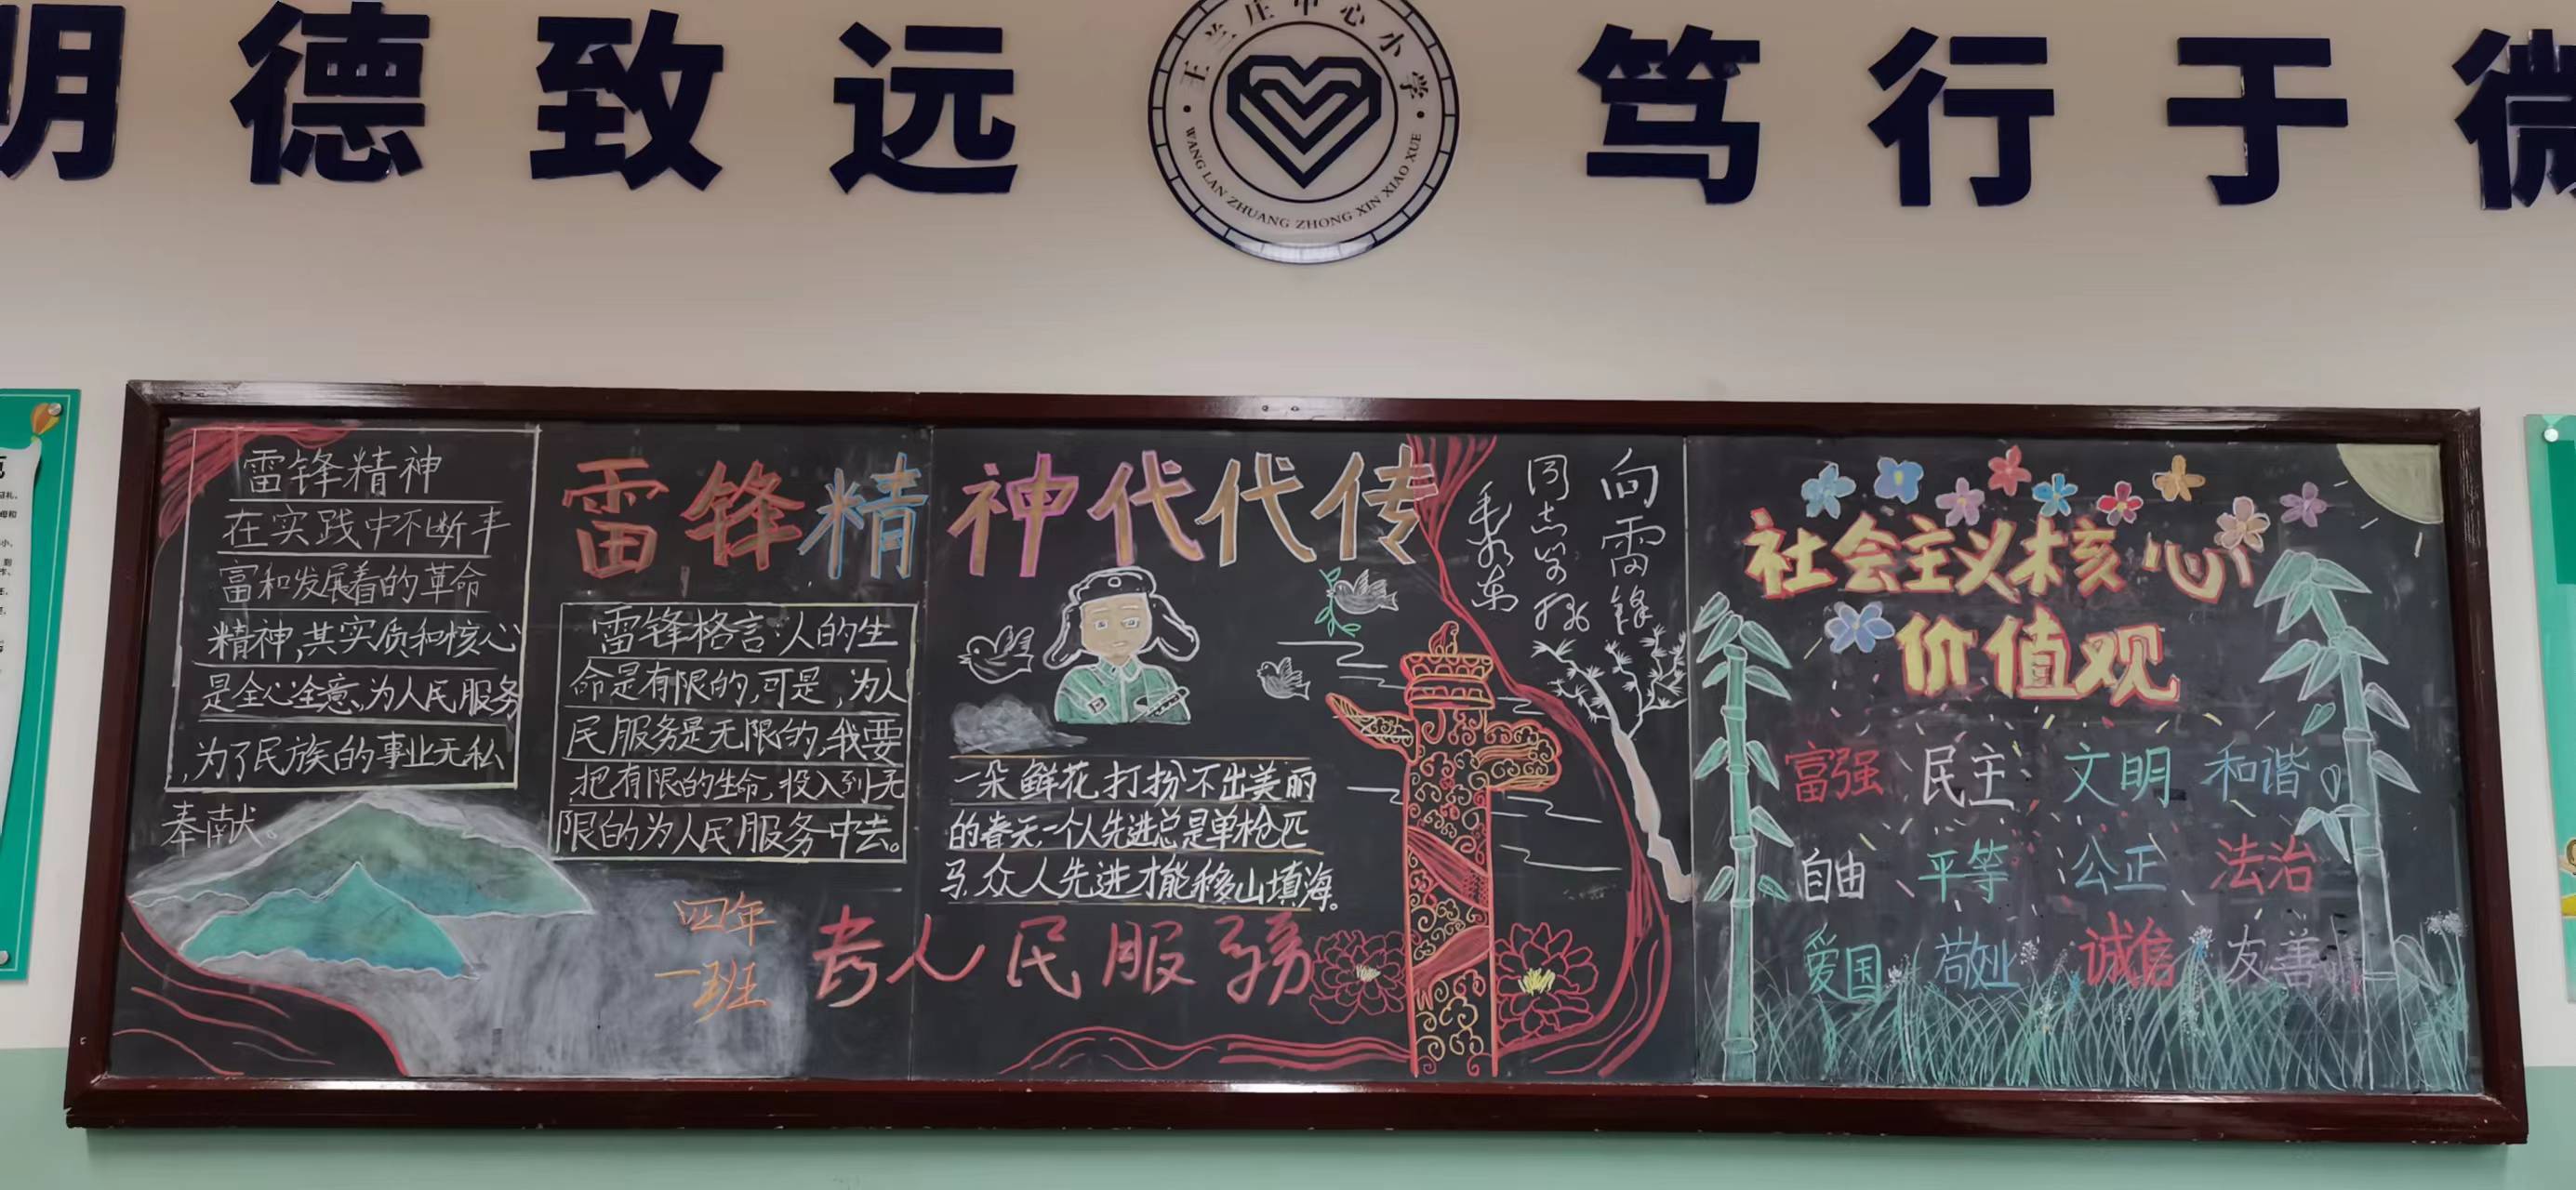 明德致远
王兰庄中心小学
WANG LAN ZHUANG ZHONG XIN XIAO XUE
笃行于微
雷锋精神
在实践中不断丰
富和发展着的革命
精神,其实质和核心
是全心全意、为人民服务
,为了民族的事业无私
奉献。
雷锋精神代代传
雷锋格言:人的生
命是有限的,可是,为人
民服务是无限的,我要
把有限的生命,投入到无
限的为人民服务中去。
四年
一班
一朵鲜花打扮不出美丽
的春天,一个人先进总是单枪匹
马,众人先进才能移山填海。
为人民服务
向雷锋
同志学习
毛泽东
社会主义核心
价值观
富强 民主 文明 和谐
自由 平等 公正 法治
爱国 敬业 诚信 友善